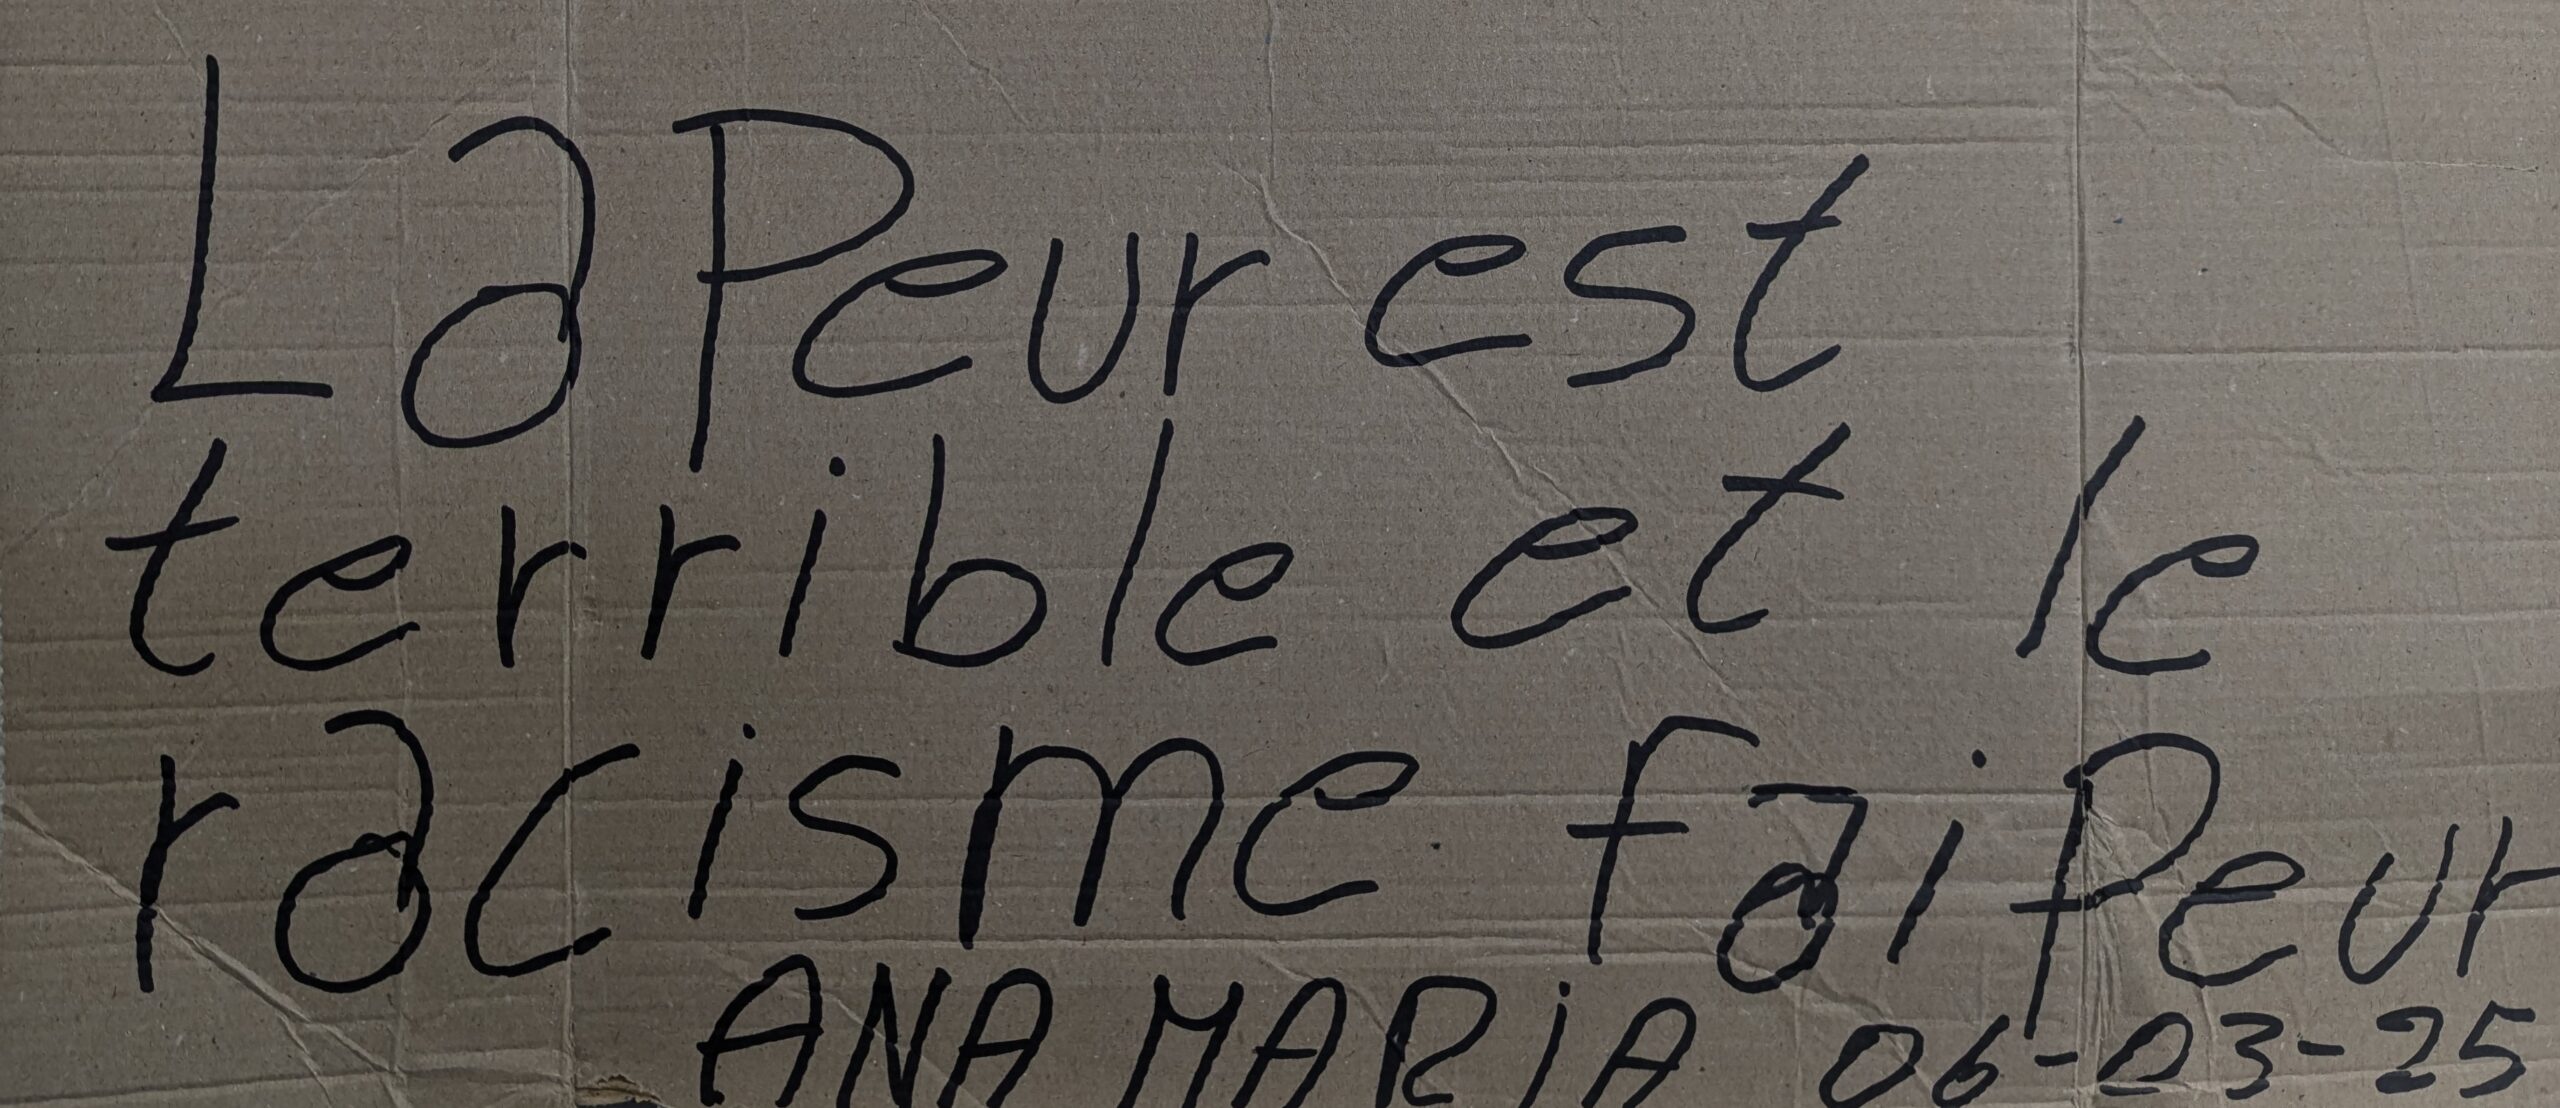 La Peur est
terrible et le
racisme fai Peur
ANA MARiA 06-03-25